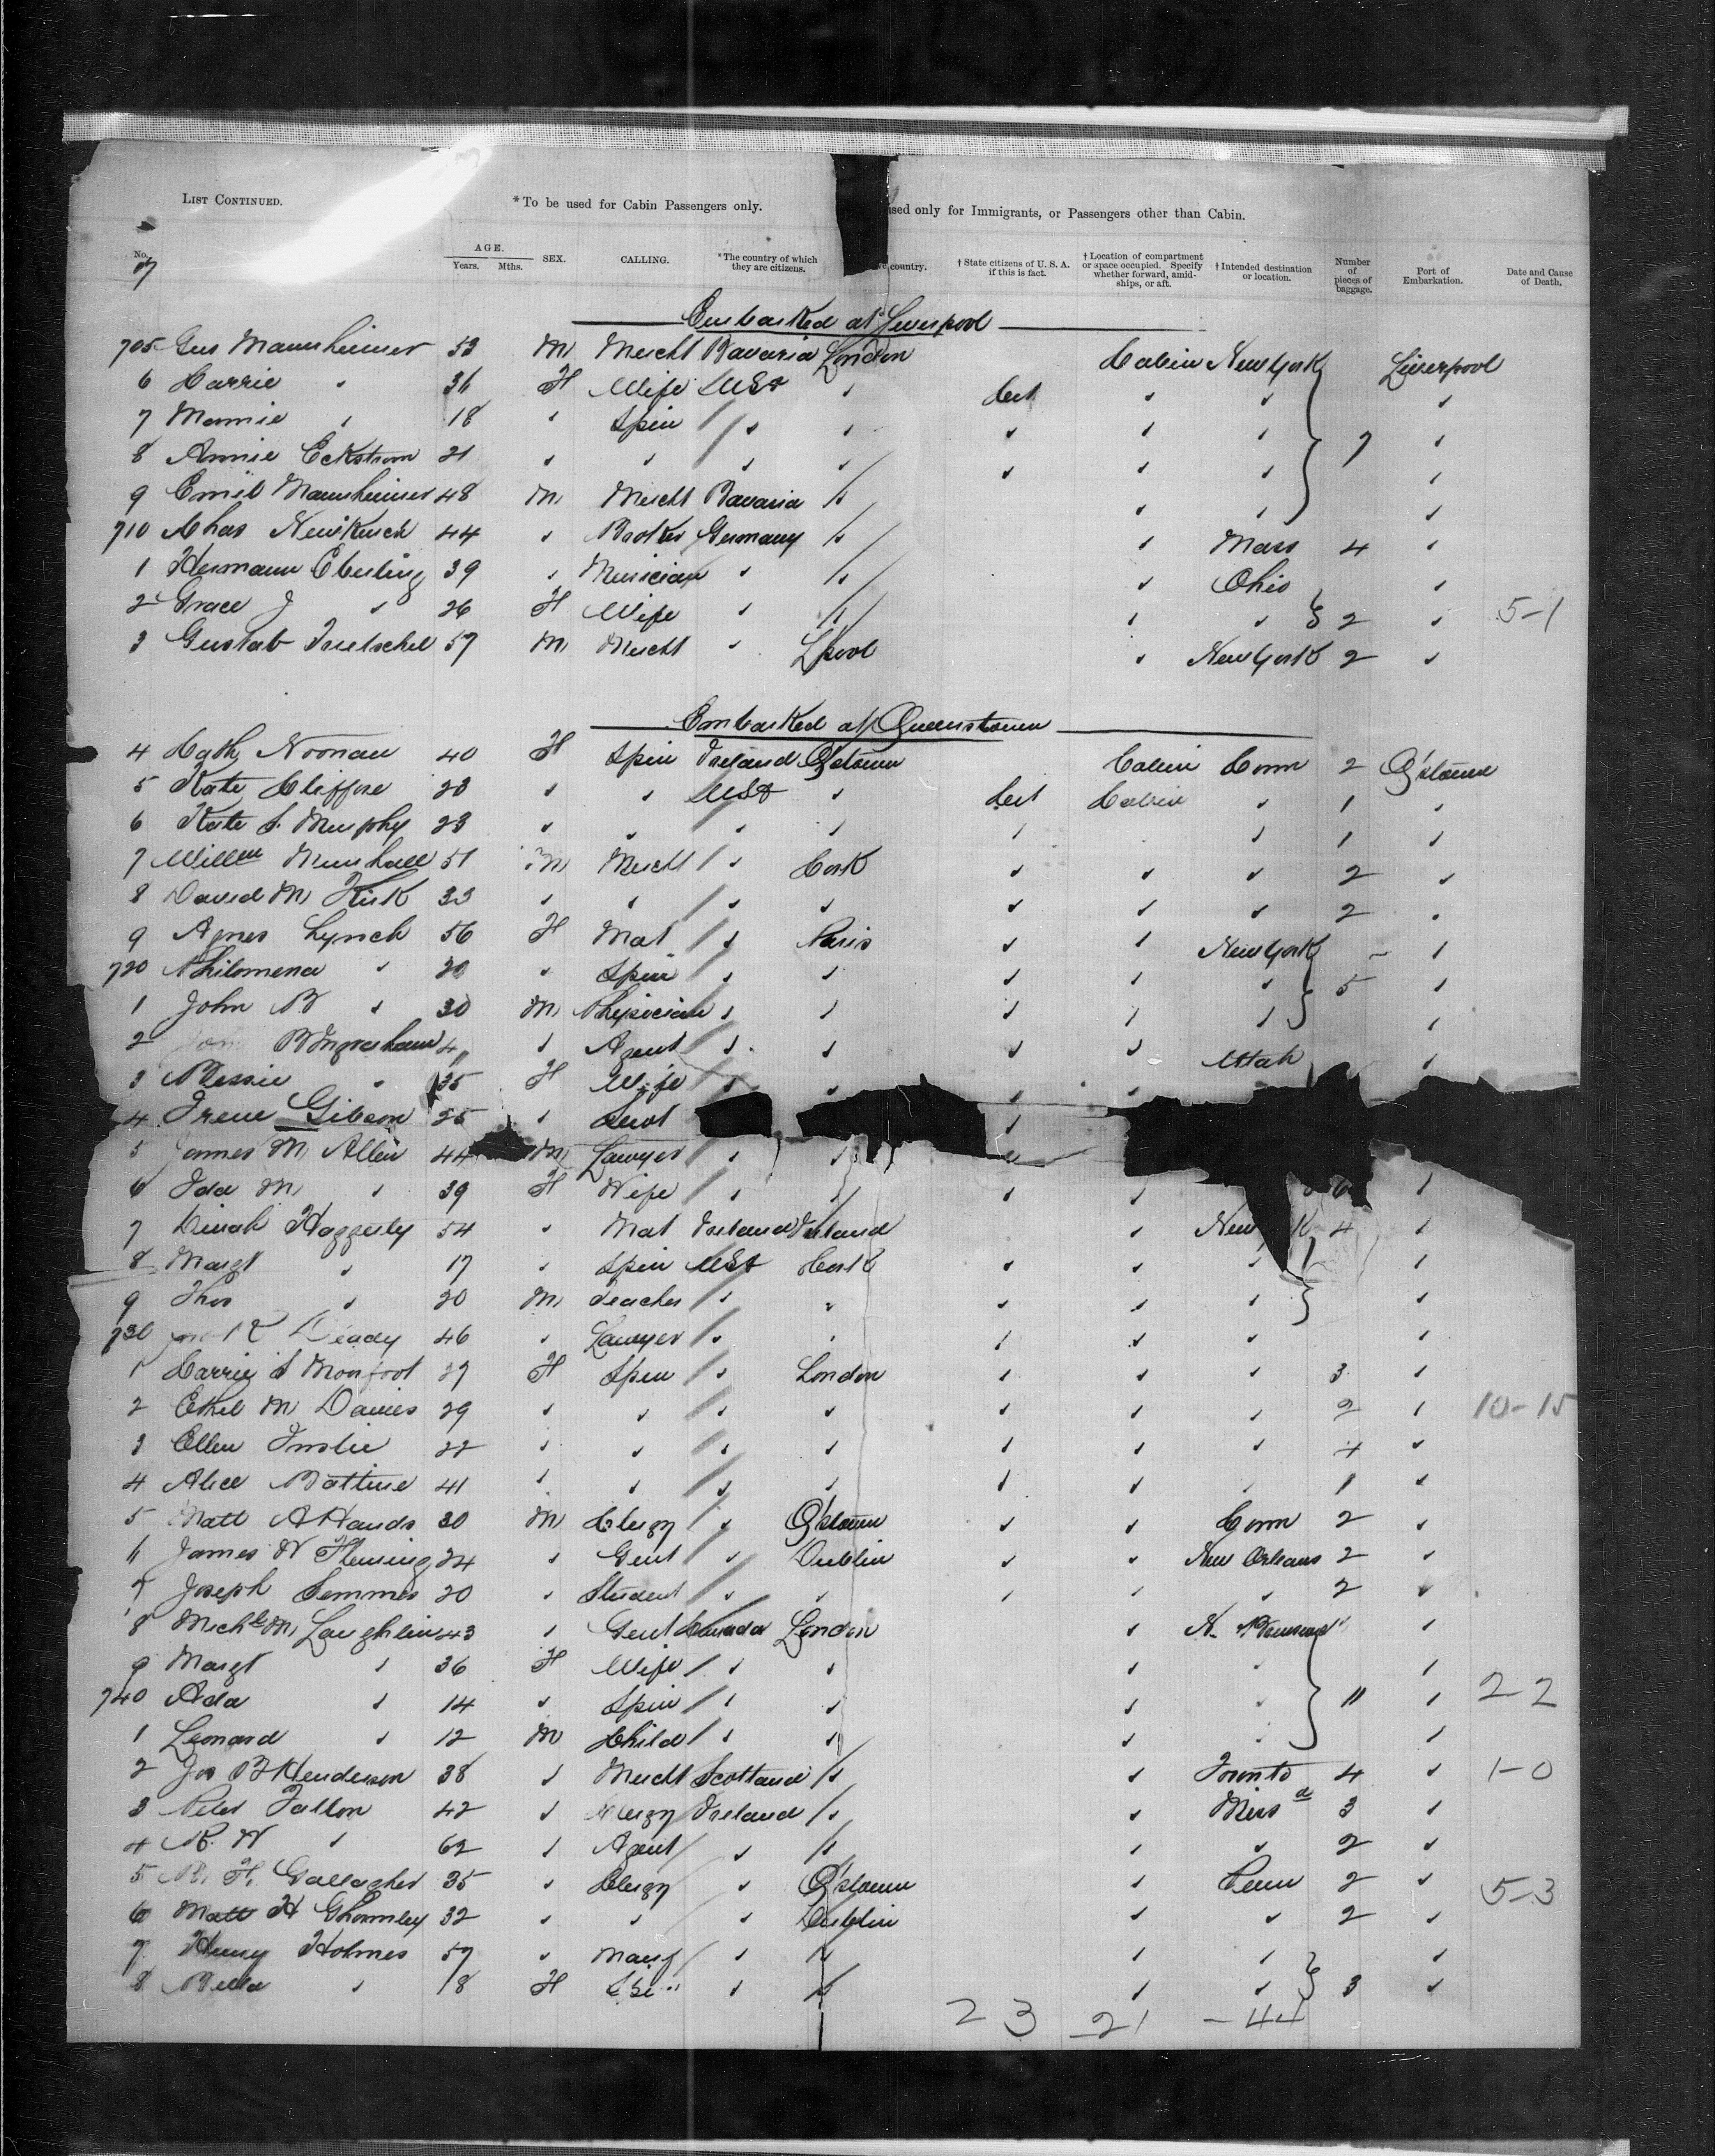 LIST CONTINUED. *To be used for Cabin Passengers only. used only for Immigrants, or Passengers other than Cabin.
No. AGE. Years. Mths. SEX. CALLING. *The country of which they are citizens. country. †State citizens of U. S. A. if this is fact. †Location of compartment or space occupied. Specify whether forward, amidships, or aft. †Intended destination or location. Number of pieces of baggage. Port of Embarkation. Date and Cause of Death.
Embarked at Liverpool
705 Gus Mannheimer 53 M Mercht Bavaria London Cabin New York Liverpool
6 Carrie " 36 F Wife USA " Cert " " "
7 Mamie " 18 " Spin " " " " " "
8 Annie Eckstrom 21 " " " " " " " 7 "
9 Emil Mannheimer 48 M Mercht Bavaria " " " "
710 Chas 44 " Broker Germany " " Mass 4 "
1 Hermann Eberling 39 " Musician " " " Ohio "
2 Grace J " 26 F Wife " " " " 2 " 5-1
3 Gustav 57 M Mercht " Lpool " New York 2 "
Embarked at Queenstown
4 Cath Noonan 40 F Spin Ireland Q'stown Cabin Conn 2 Q'stown
5 Kate 23 " " USA " Cert Cabin " 1 "
6 Kate S. Murphy 23 " " " " " " 1 "
7 Willm 51 M Mercht " Cork " " " 2 "
8 David M Kirk 33 " " " " " " " 2 "
9 Agnes Lynch 56 F Mat " Paris " " New York "
720 Philomena " 20 " Spin " " " " " 5 "
1 John B " 30 M Physician " " " " " "
2 B Ingraham " Agent " " " " Utah "
3 Bessie " 35 F Wife " " " "
4 Irene Gibson 25 " Servt "
5 James M Allen 44 M Lawyer " " "
6 Ida M " 39 F Wife " " " " 6 "
7 Dinah Haggerty 54 " Mat Ireland Ireland " New 4 "
8 Margt " 17 " Spin USA Cork " " " "
9 Thos " 20 M Teacher " " " " " "
730 Deady 46 " Lawyer " " " " " "
1 Carrie S Monfoot F Spin " London " " " 3 "
2 Ethel M Davies 29 " " " " " " " 2 " 10-15
3 Ellen Inslie 22 " " " " " " " "
4 Alice Battine 41 " " " " " " " 1 "
5 Matt A Hands 30 M Clergy " Q'stown " " Conn 2 "
6 James W Fleming 24 " Gent " Dublin " " New Orleans 2 "
7 Joseph Semmes 20 " Student " " " " " 2 "
8 Michl McLaughlin 43 " Gent Canada London " N. "
9 Margt " 36 F Wife " " " " "
740 Ada " 14 " Spin " " " " 11 " 2-2
1 Leonard " 12 M Child " " " " "
2 Jos B Henderson 38 " Mercht Scotland " " Toronto 4 " 1-0
3 Peter Fallon 42 " Clergy Ireland " " Miss 3 "
4 R. W " 62 " Agent " " " " 2 "
5 F. Gallagher 35 " Clergy " Q'stown " Penn 2 " 5-3
6 Matt H Ghormley 32 " " " Dublin " " 2 "
7 Henry Holmes 57 " Manf " " " " "
8 Bella " 18 F " " " " 3 "
23 21 -44